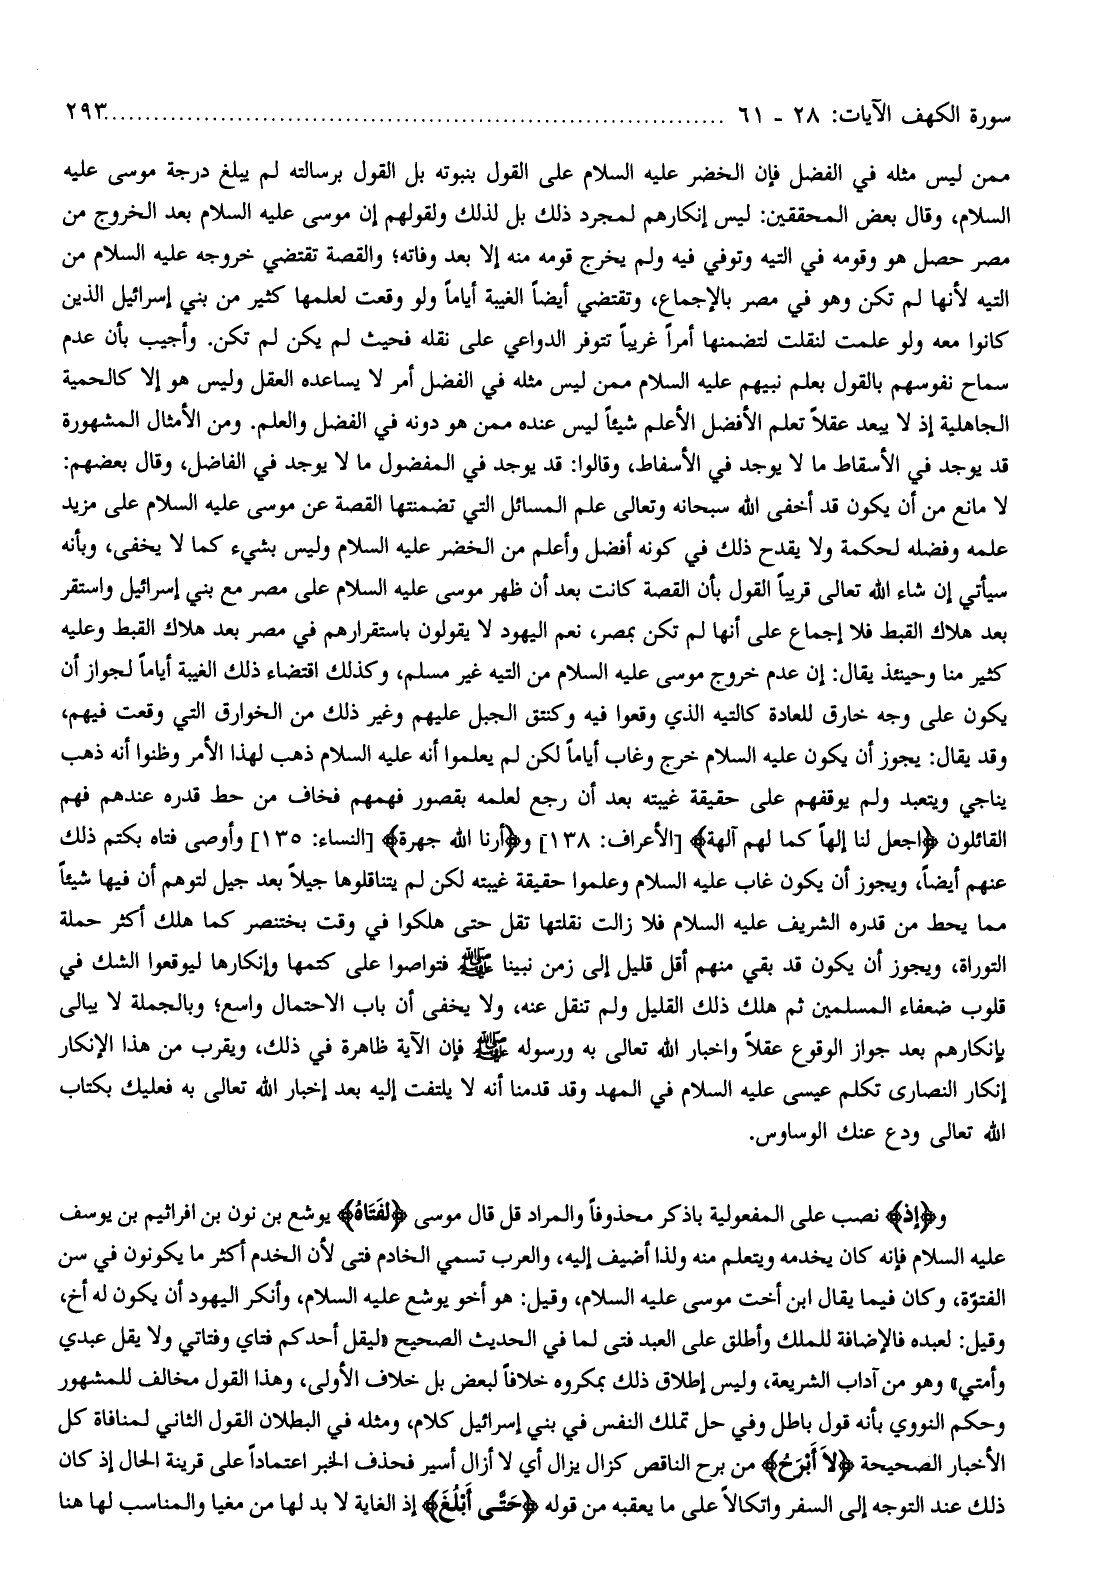 سورة الكهف الآيات: ٢٨ ـ ٦١ ........................................................................... ٢٩٣
ممن ليس مثله في الفضل فإن الخضر عليه السلام على القول بنبوته بل القول برسالته لم يبلغ درجة موسى عليه
السلام، وقال بعض المحققين: ليس إنكارهم لمجرد ذلك بل لذلك ولقولهم إن موسى عليه السلام بعد الخروج من
مصر حصل هو وقومه في التيه وتوفي فيه ولم يخرج قومه منه إلا بعد وفاته؛ والقصة تقتضي خروجه عليه السلام من
التيه لأنها لم تكن وهو في مصر بالإجماع، وتقتضي أيضاً الغيبة أياماً ولو وقعت لعلمها كثير من بني إسرائيل الذين
كانوا معه ولو علمت لنقلت لتضمنها أمراً غريباً تتوفر الدواعي على نقله فحيث لم يكن لم تكن. وأجيب بأن عدم
سماح نفوسهم بالقول بعلم نبيهم عليه السلام ممن ليس مثله في الفضل أمر لا يساعده العقل وليس هو إلا كالحمية
الجاهلية إذ لا يبعد عقلاً تعلم الأفضل الأعلم شيئاً ليس عنده ممن هو دونه في الفضل والعلم. ومن الأمثال المشهورة
قد يوجد في الأسقاط ما لا يوجد في الأسفاط، وقالوا: قد يوجد في المفضول ما لا يوجد في الفاضل، وقال بعضهم:
لا مانع من أن يكون قد أخفى الله سبحانه وتعالى علم المسائل التي تضمنتها القصة عن موسى عليه السلام على مزيد
علمه وفضله لحكمة ولا يقدح ذلك في كونه أفضل وأعلم من الخضر عليه السلام وليس بشيء كما لا يخفى، وبأنه
سيأتي إن شاء الله تعالى قريباً القول بأن القصة كانت بعد أن ظهر موسى عليه السلام على مصر مع بني إسرائيل واستقر
بعد هلاك القبط فلا إجماع على أنها لم تكن بمصر، نعم اليهود لا يقولون باستقرارهم في مصر بعد هلاك القبط وعليه
كثير منا وحينئذ يقال: إن عدم خروج موسى عليه السلام من التيه غير مسلم، وكذلك اقتضاء ذلك الغيبة أياماً لجواز أن
يكون على وجه خارق للعادة كالتيه الذي وقعوا فيه وكنتق الجبل عليهم وغير ذلك من الخوارق التي وقعت فيهم،
وقد يقال: يجوز أن يكون عليه السلام خرج وغاب أياماً لكن لم يعلموا أنه عليه السلام ذهب لهذا الأمر وظنوا أنه ذهب
يناجي ويتعبد ولم يوقفهم على حقيقة غيبته بعد أن رجع لعلمه بقصور فهمهم فخاف من حط قدره عندهم فهم
القائلون ﴿اجعل لنا إلهاً كما لهم آلهة﴾ [الأعراف: ١٣٨] و﴿أرنا الله جهرة﴾ [النساء: ١٣٥] وأوصى فتاه بكتم ذلك
عنهم أيضاً، ويجوز أن يكون غاب عليه السلام وعلموا حقيقة غيبته لكن لم يتناقلوها جيلاً بعد جيل لتوهم أن فيها شيئاً
مما يحط من قدره الشريف عليه السلام فلا زالت نقلتها تقل حتى هلكوا في وقت بختنصر كما هلك أكثر حملة
التوراة، ويجوز أن يكون قد بقي منهم أقل قليل إلى زمن نبينا ﷺ فتواصوا على كتمها وإنكارها ليوقعوا الشك في
قلوب ضعفاء المسلمين ثم هلك ذلك القليل ولم تنقل عنه، ولا يخفى أن باب الاحتمال واسع؛ وبالجملة لا يبالى
بإنكارهم بعد جواز الوقوع عقلاً واخبار الله تعالى به ورسوله ﷺ فإن الآية ظاهرة في ذلك، ويقرب من هذا الإنكار
إنكار النصارى تكلم عيسى عليه السلام في المهد وقد قدمنا أنه لا يلتفت إليه بعد إخبار الله تعالى به فعليك بكتاب
الله تعالى ودع عنك الوساوس.
و﴿إذ﴾ نصب على المفعولية باذكر محذوفاً والمراد قل قال موسى ﴿لفَتَاهُ﴾ يوشع بن نون بن افراثيم بن يوسف
عليه السلام فإنه كان يخدمه ويتعلم منه ولذا أضيف إليه، والعرب تسمي الخادم فتى لأن الخدم أكثر ما يكونون في سن
الفتوّة، وكان فيما يقال ابن أخت موسى عليه السلام، وقيل: هو أخو يوشع عليه السلام، وأنكر اليهود أن يكون له أخ،
وقيل: لعبده فالإضافة للملك وأطلق على العبد فتى لما في الحديث الصحيح «ليقل أحدكم فتاي وفتاتي ولا يقل عبدي
وأمتي» وهو من آداب الشريعة، وليس إطلاق ذلك بمكروه خلافاً لبعض بل خلاف الأولى، وهذا القول مخالف للمشهور
وحكم النووي بأنه قول باطل وفي حل تملك النفس في بني إسرائيل كلام، ومثله في البطلان القول الثاني لمنافاة كل
الأخبار الصحيحة ﴿لاَ أَبْرَحُ﴾ من برح الناقص كزال يزال أي لا أزال أسير فحذف الخبر اعتماداً على قرينة الحال إذ كان
ذلك عند التوجه إلى السفر واتكالاً على ما يعقبه من قوله ﴿حَتَّى أَبْلُغَ﴾ إذ الغاية لا بد لها من مغيا والمناسب لها هنا